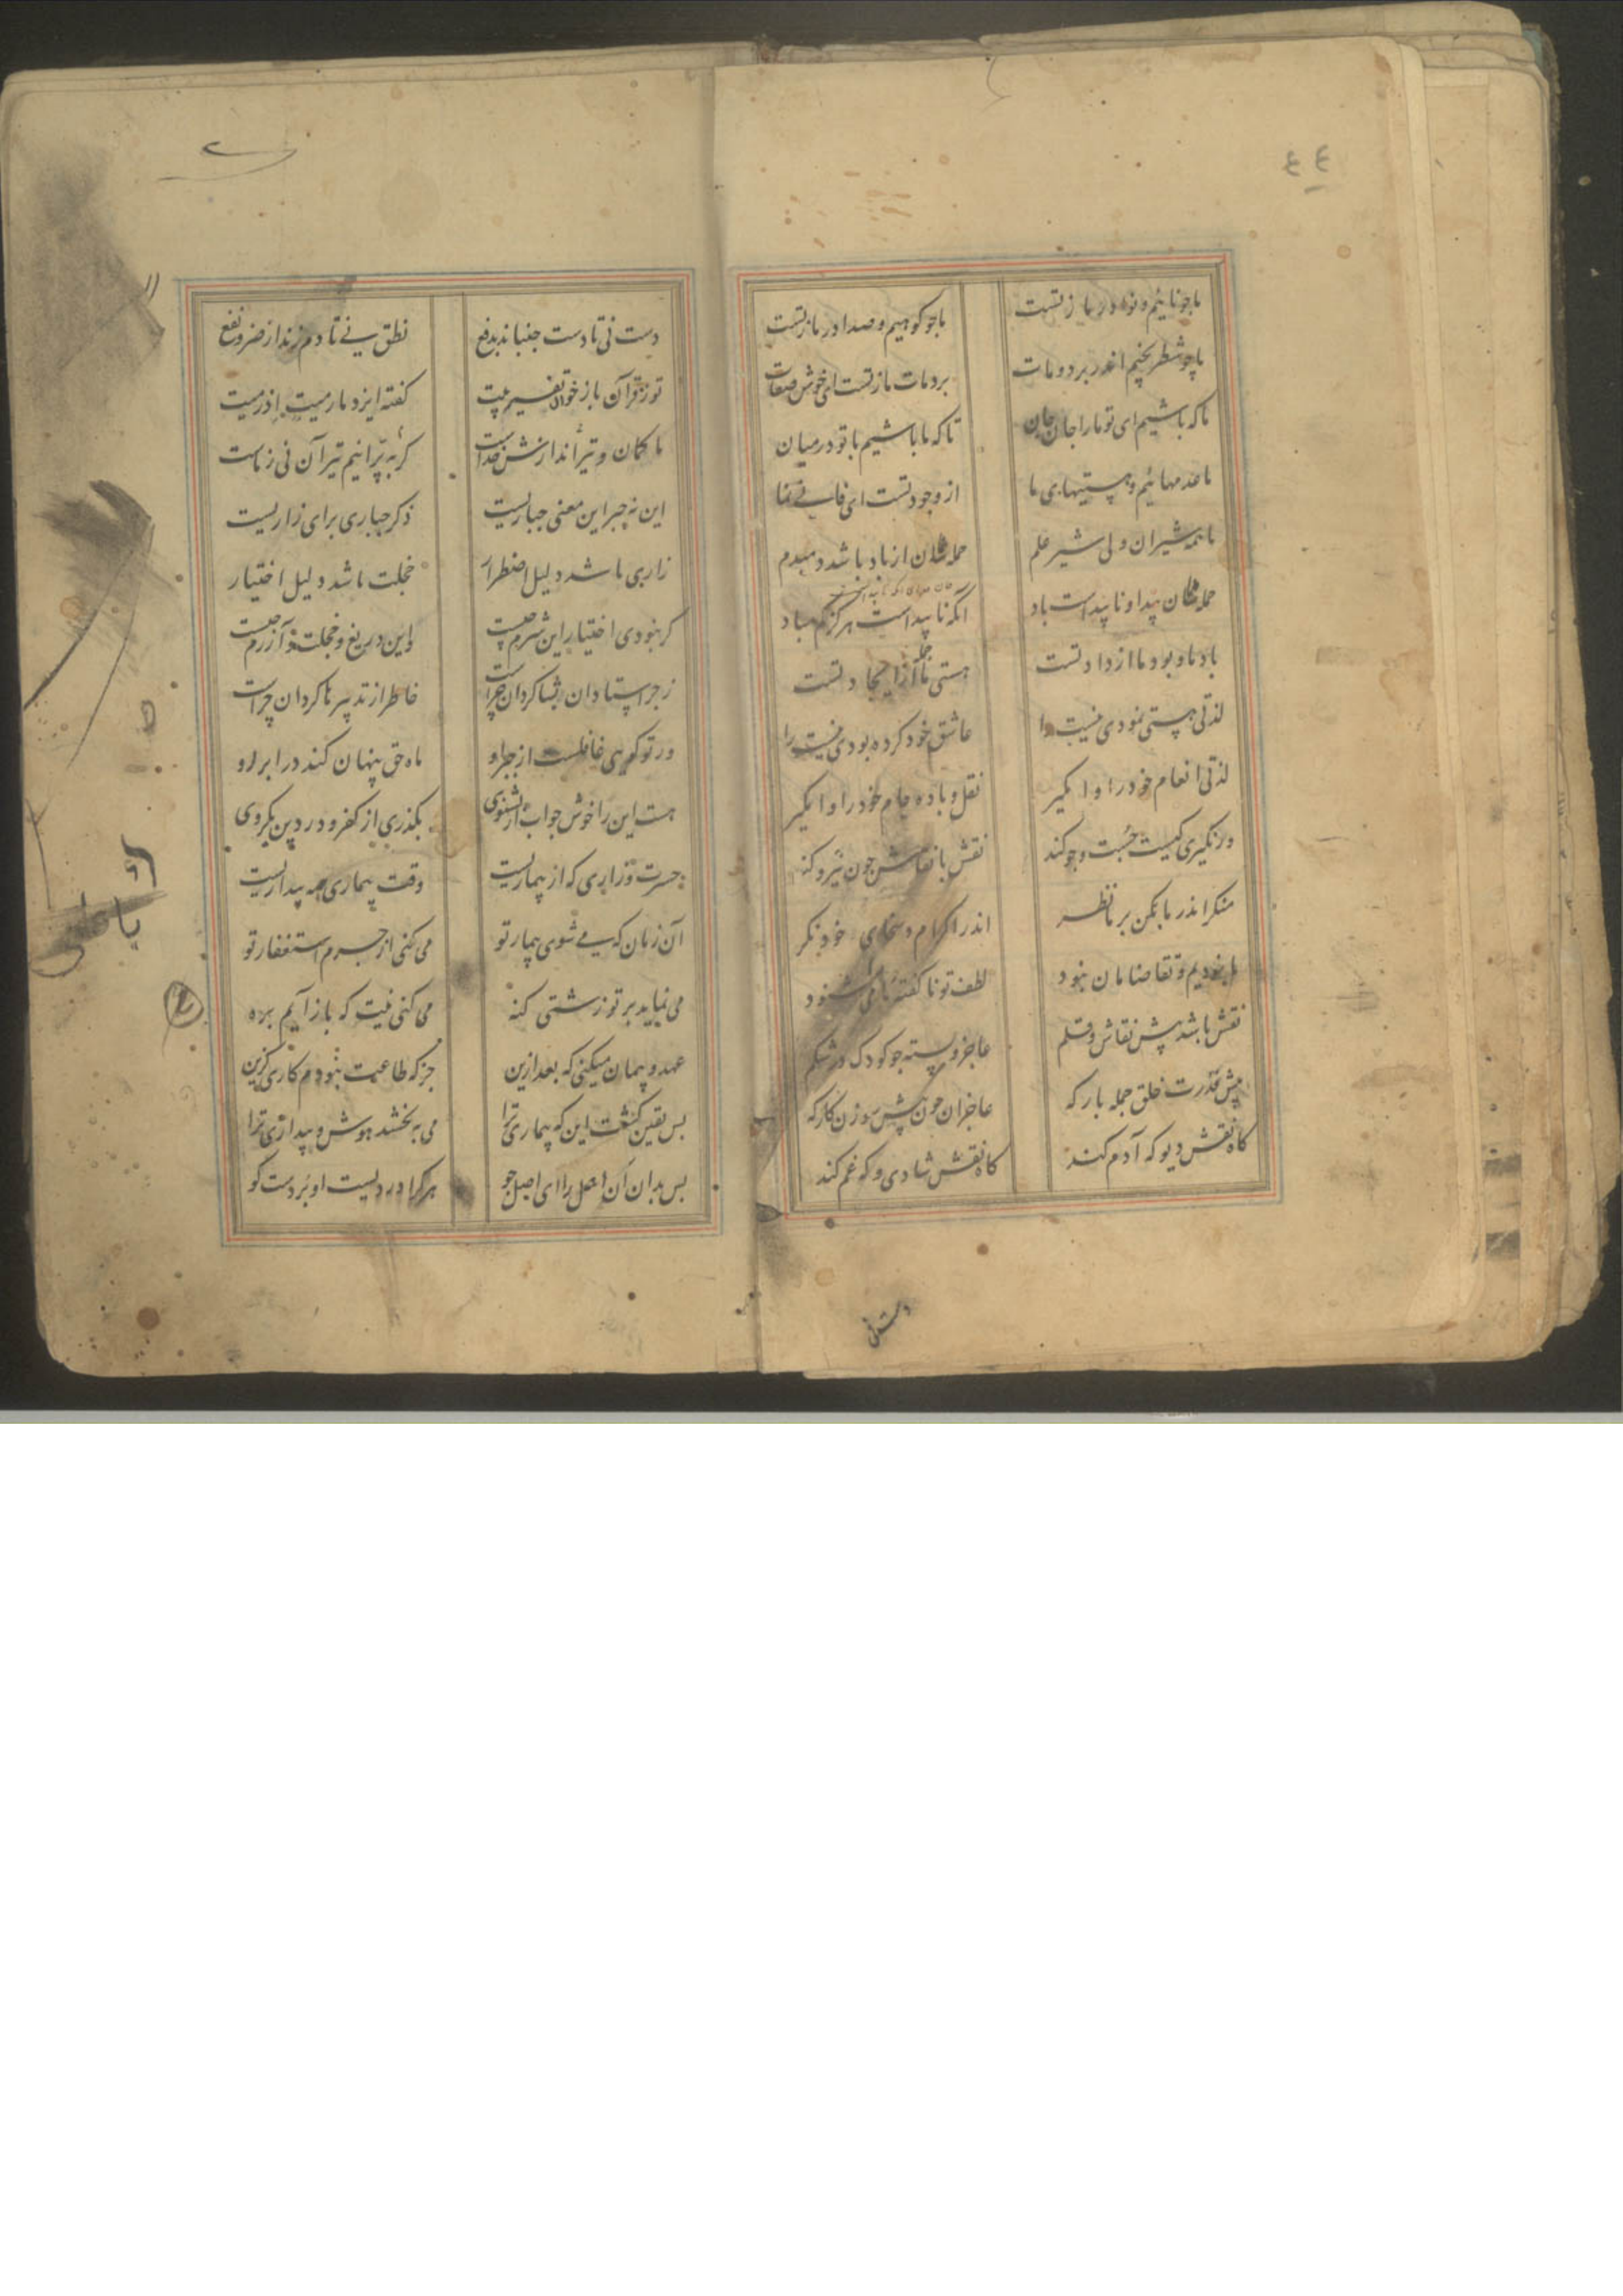 ٤٤
ما چو ناییم و نوا در ما ز تست ما چو کوهیم و صدا در ما ز تست
ما چو شطرنجیم اندر برد و مات برد و مات ما ز تست ای خوش صفات
ما که باشیم ای تو ما را جان جان تا که ما باشیم با تو در میان
ما عدمهائیم و هستیهای ما از وجود تست ای فانی نما
ما همه شیران ولی شیر علم حمله شان از باد باشد دمبدم
حمله شان پیدا و ناپیداست باد آنکه ناپیداست هرگز کم مباد
باد ما و بود ما از داد تست هستی ما جمله از ایجاد تست
لذتی هستی نمودی نیست را عاشق خود کرده بودی نیست را
لذتی انعام خود را وا مگیر نقل و باده جام خود را وا مگیر
ور نگیری کیست جست و جو کند نقش با نقاش چون نیرو کند
منگر اندر ما مکن بر ما نظر اندر اکرام و سخای خود نگر
ما نبودیم و تقاضامان نبود لطف تو ناگفته ما می شنود
نقش باشد پیش نقاش و قلم عاجز و بسته چو کودک در شکم
پیش قدرت خلق جمله بارکه عاجزان چون پیش سوزن کارکه
گاه نقش دیو گه آدم کند گاه نقش شادی و گه غم کند
دست نی تا دست جنباند بدفع نطق نی تا دم زند از ضر و نفع
تو ز قرآن باز خوان تفسیر بیت گفته ایزد ما رمیت اذ رمیت
گر بپرانیم تیر آن نی ز ماست ما کمان و تیراندازش خداست
این نه جبر این معنی جباریست ذکر جباری برای زاریست
زاری ما شد دلیل اضطرار خجلت ما شد دلیل اختیار
گر نبودی اختیار این شرم چیست واین دریغ و خجلت و آزرم چیست
زجر استادان بشاگردان چراست خاطر از تدبیرها گردان چراست
ور تو گویی غافلست از جبر او ماه حق پنهان کند در ابر رو
هست این را خوش جواب ار بشنوی بگذری از کفر و در دین بگروی
حسرت و زاری که از بیماریست وقت بیماری همه بیداریست
آن زمان که می شوی بیمار تو می کنی از جرم استغفار تو
می نماید بر تو زشتی گنه می کنی نیت که باز آیم بره
عهد و پیمان میکنی که بعد ازین جز که طاعت نبودم کاری گزین
بس یقین گشت این که بیماری ترا می ببخشد هوش و بیداری ترا
بس بدان آن اصل را ای اصل جو هر کرا دردیست او بردست بو